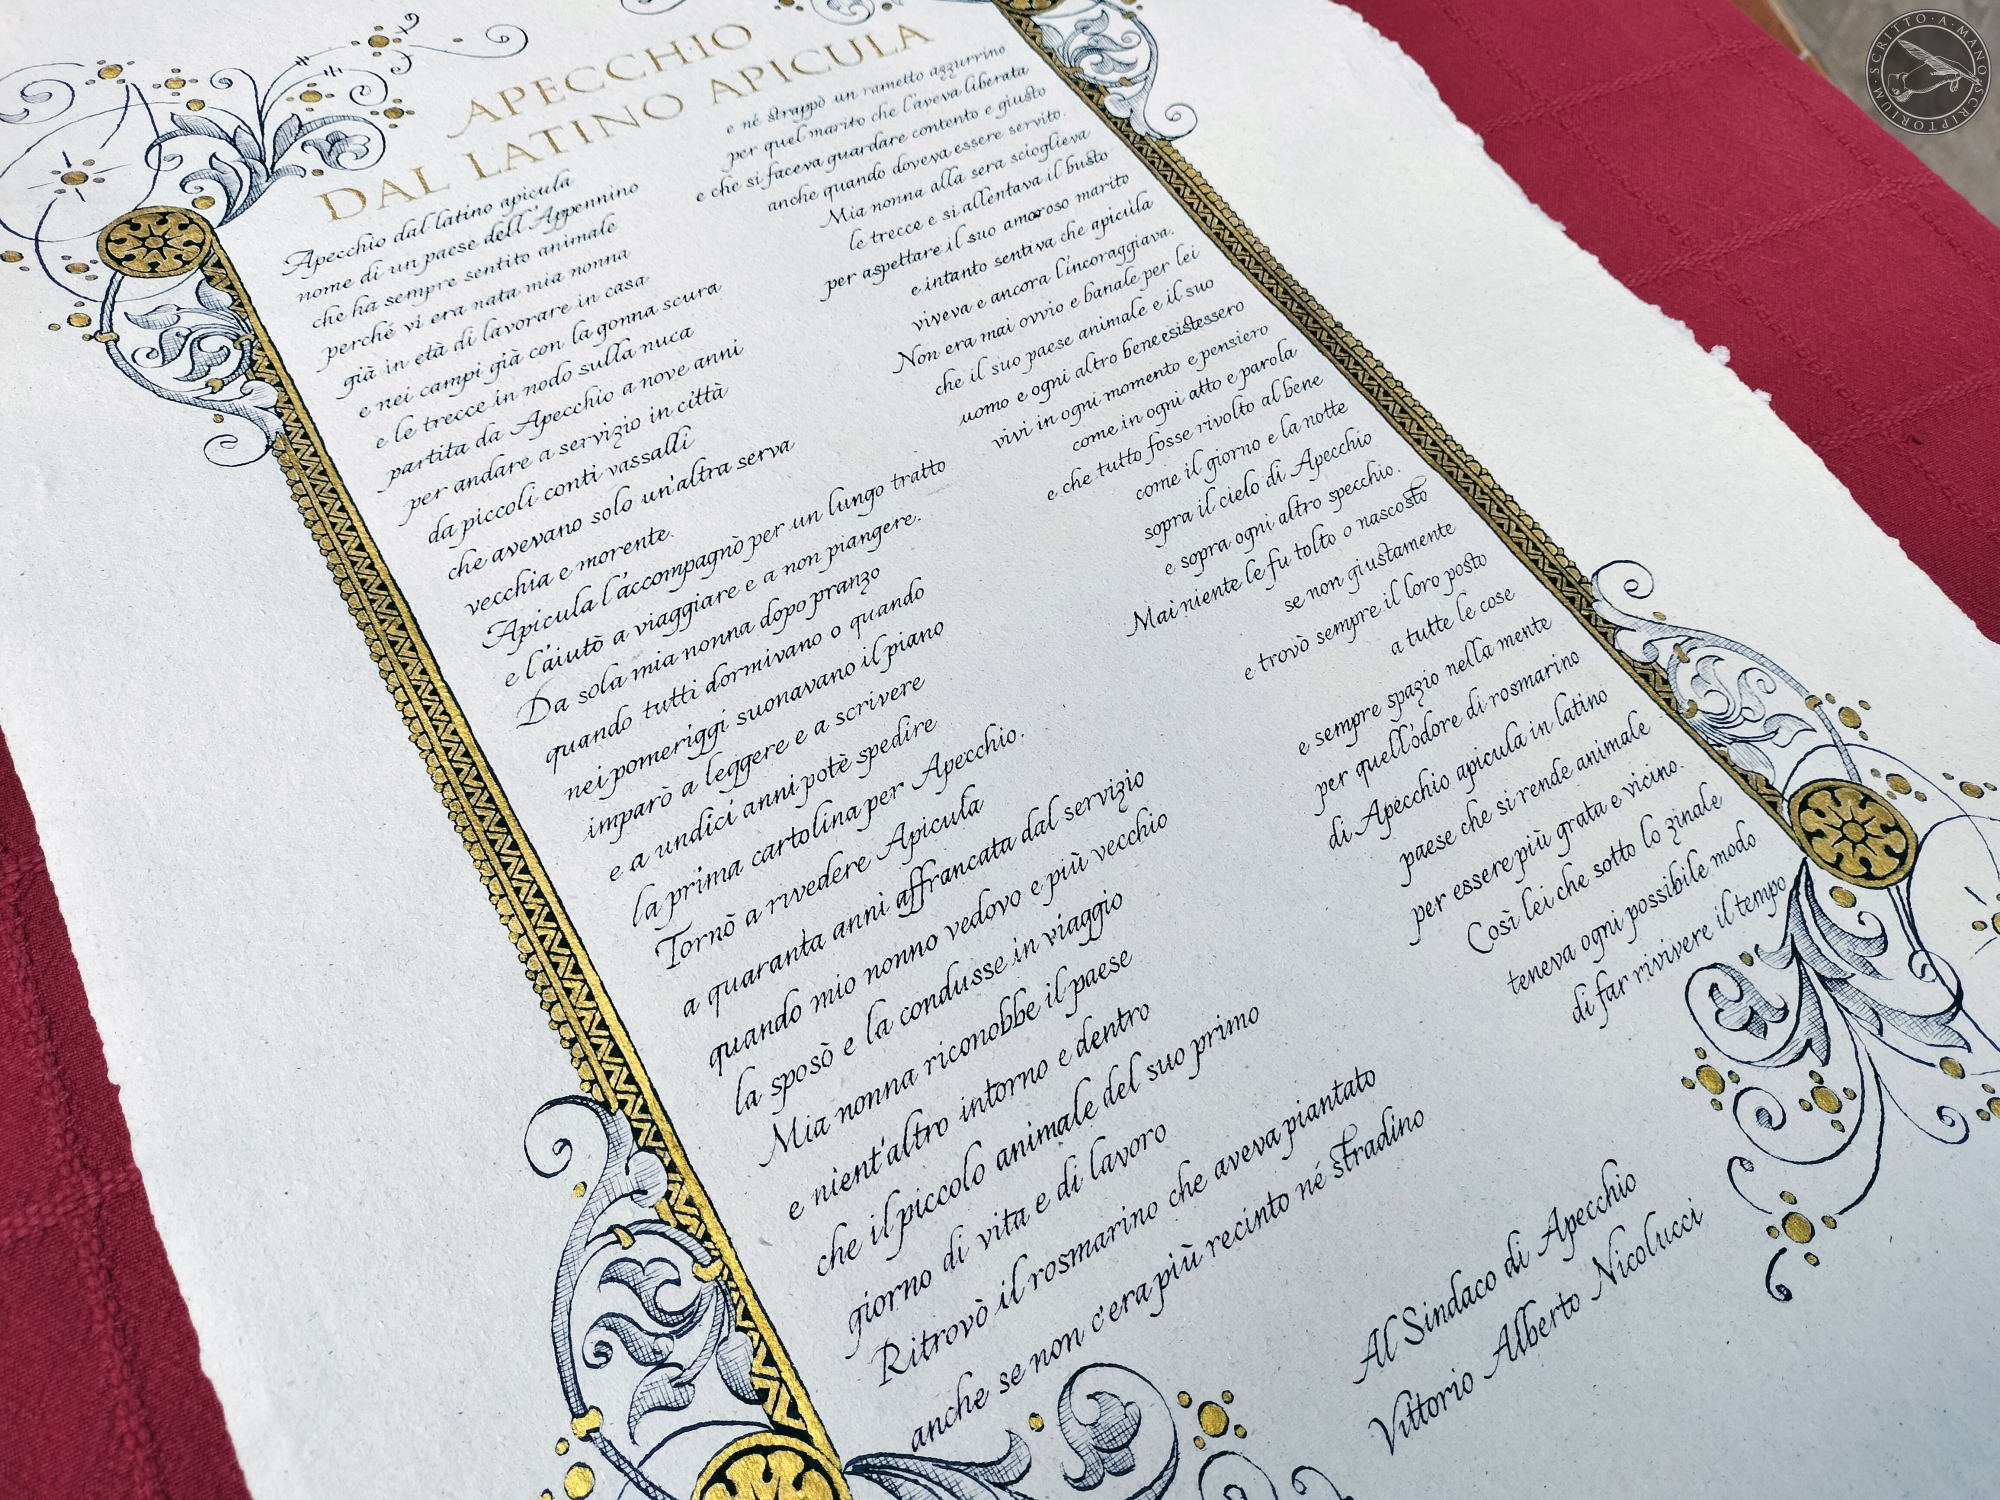 APECCHIO
DAL LATINO APICULA
Apecchio dal latino apicula
nome di un paese dell'Appennino
che ha sempre sentito animale
perché vi era nata mia nonna
già in età di lavorare in casa
e nei campi già con la gonna scura
e le trecce in nodo sulla nuca
partita da Apecchio a nove anni
per andare a servizio in città
da piccoli conti vassalli
che avevano solo un'altra serva
vecchia e morente.
Apicula l'accompagnò per un lungo tratto
e l'aiutò a viaggiare e a non piangere.
Da sola mia nonna dopo pranzo
quando tutti dormivano o quando
nei pomeriggi suonavano il piano
imparò a leggere e a scrivere
e a undici anni potè spedire
la prima cartolina per Apecchio.
Tornò a rivedere Apicula
a quaranta anni affrancata dal servizio
quando mio nonno vedovo e più vecchio
la sposò e la condusse in viaggio
Mia nonna riconobbe il paese
e nient'altro intorno e dentro
che il piccolo animale del suo primo
giorno di vita e di lavoro
Ritrovò il rosmarino che aveva piantato
anche se non c'era più recinto né stradino
e né strappò un rametto azzurrino
per quel marito che l'aveva liberata
e che si faceva guardare contento e giusto
anche quando doveva essere servito.
Mia nonna alla sera scioglieva
le trecce e si allentava il busto
per aspettare il suo amoroso marito
e intanto sentiva che apicula
viveva e ancora l'incoraggiava.
Non era mai ovvio e banale per lei
che il suo paese animale e il suo
uomo e ogni altro bene esistessero
vivi in ogni momento e pensiero
come in ogni atto e parola
e che tutto fosse rivolto al bene
come il giorno e la notte
sopra il cielo di Apecchio
e sopra ogni altro specchio.
Mai niente le fu tolto o nascosto
se non giustamente
e trovò sempre il loro posto
a tutte le cose
e sempre spazio nella mente
per quell'odore di rosmarino
di Apecchio apicula in latino
paese che si rende animale
per essere più grata e vicino.
Così lei che sotto lo zinale
teneva ogni possibile modo
di far rivivere il tempo
Al Sindaco di Apecchio
Vittorio Alberto Nicolucci
SCRITTO·A·MANO SCRIPTORIUM